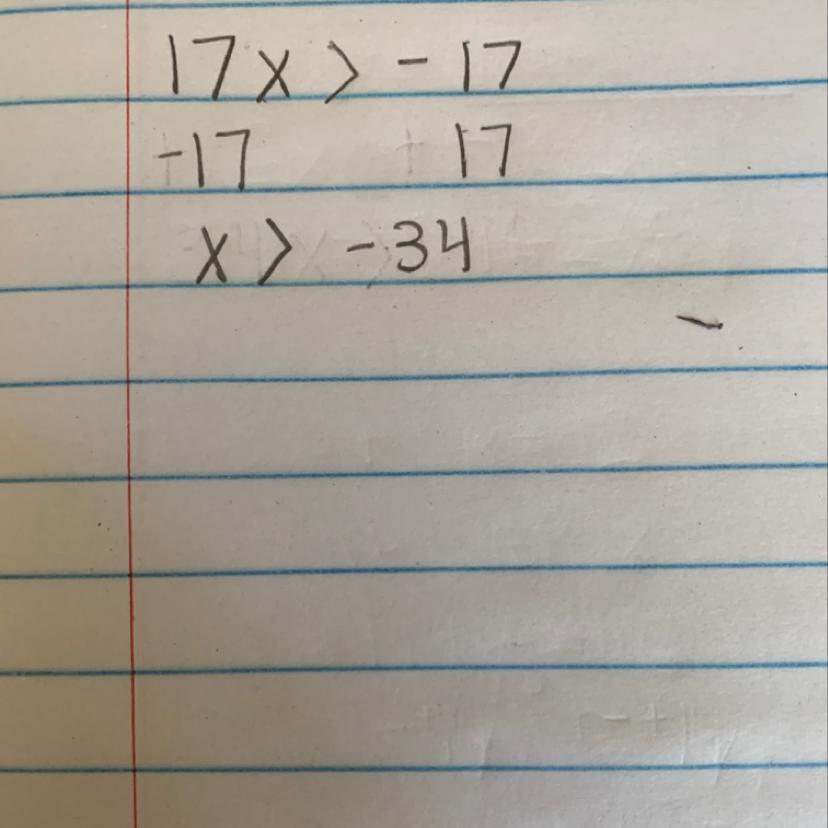 17x > - 17
-17 17
x > -34